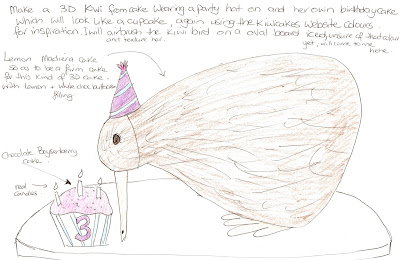 Make a 3D Kiwi from cake wearing a party hat on and her own birthday cake
which will look like a cupcake, again using the Kiwicakes website colours
for inspiration. I will airbrush the kiwi bird on a oval board iced, unsure of that colour
and texture her. yet, will come to me
here
Lemon Madiera cake
so as to be a firm cake
for this kind of 3D cake.
with lemon + white choc buttercream
filling
Chocolate Boysenberry
cake.
real
candles
3